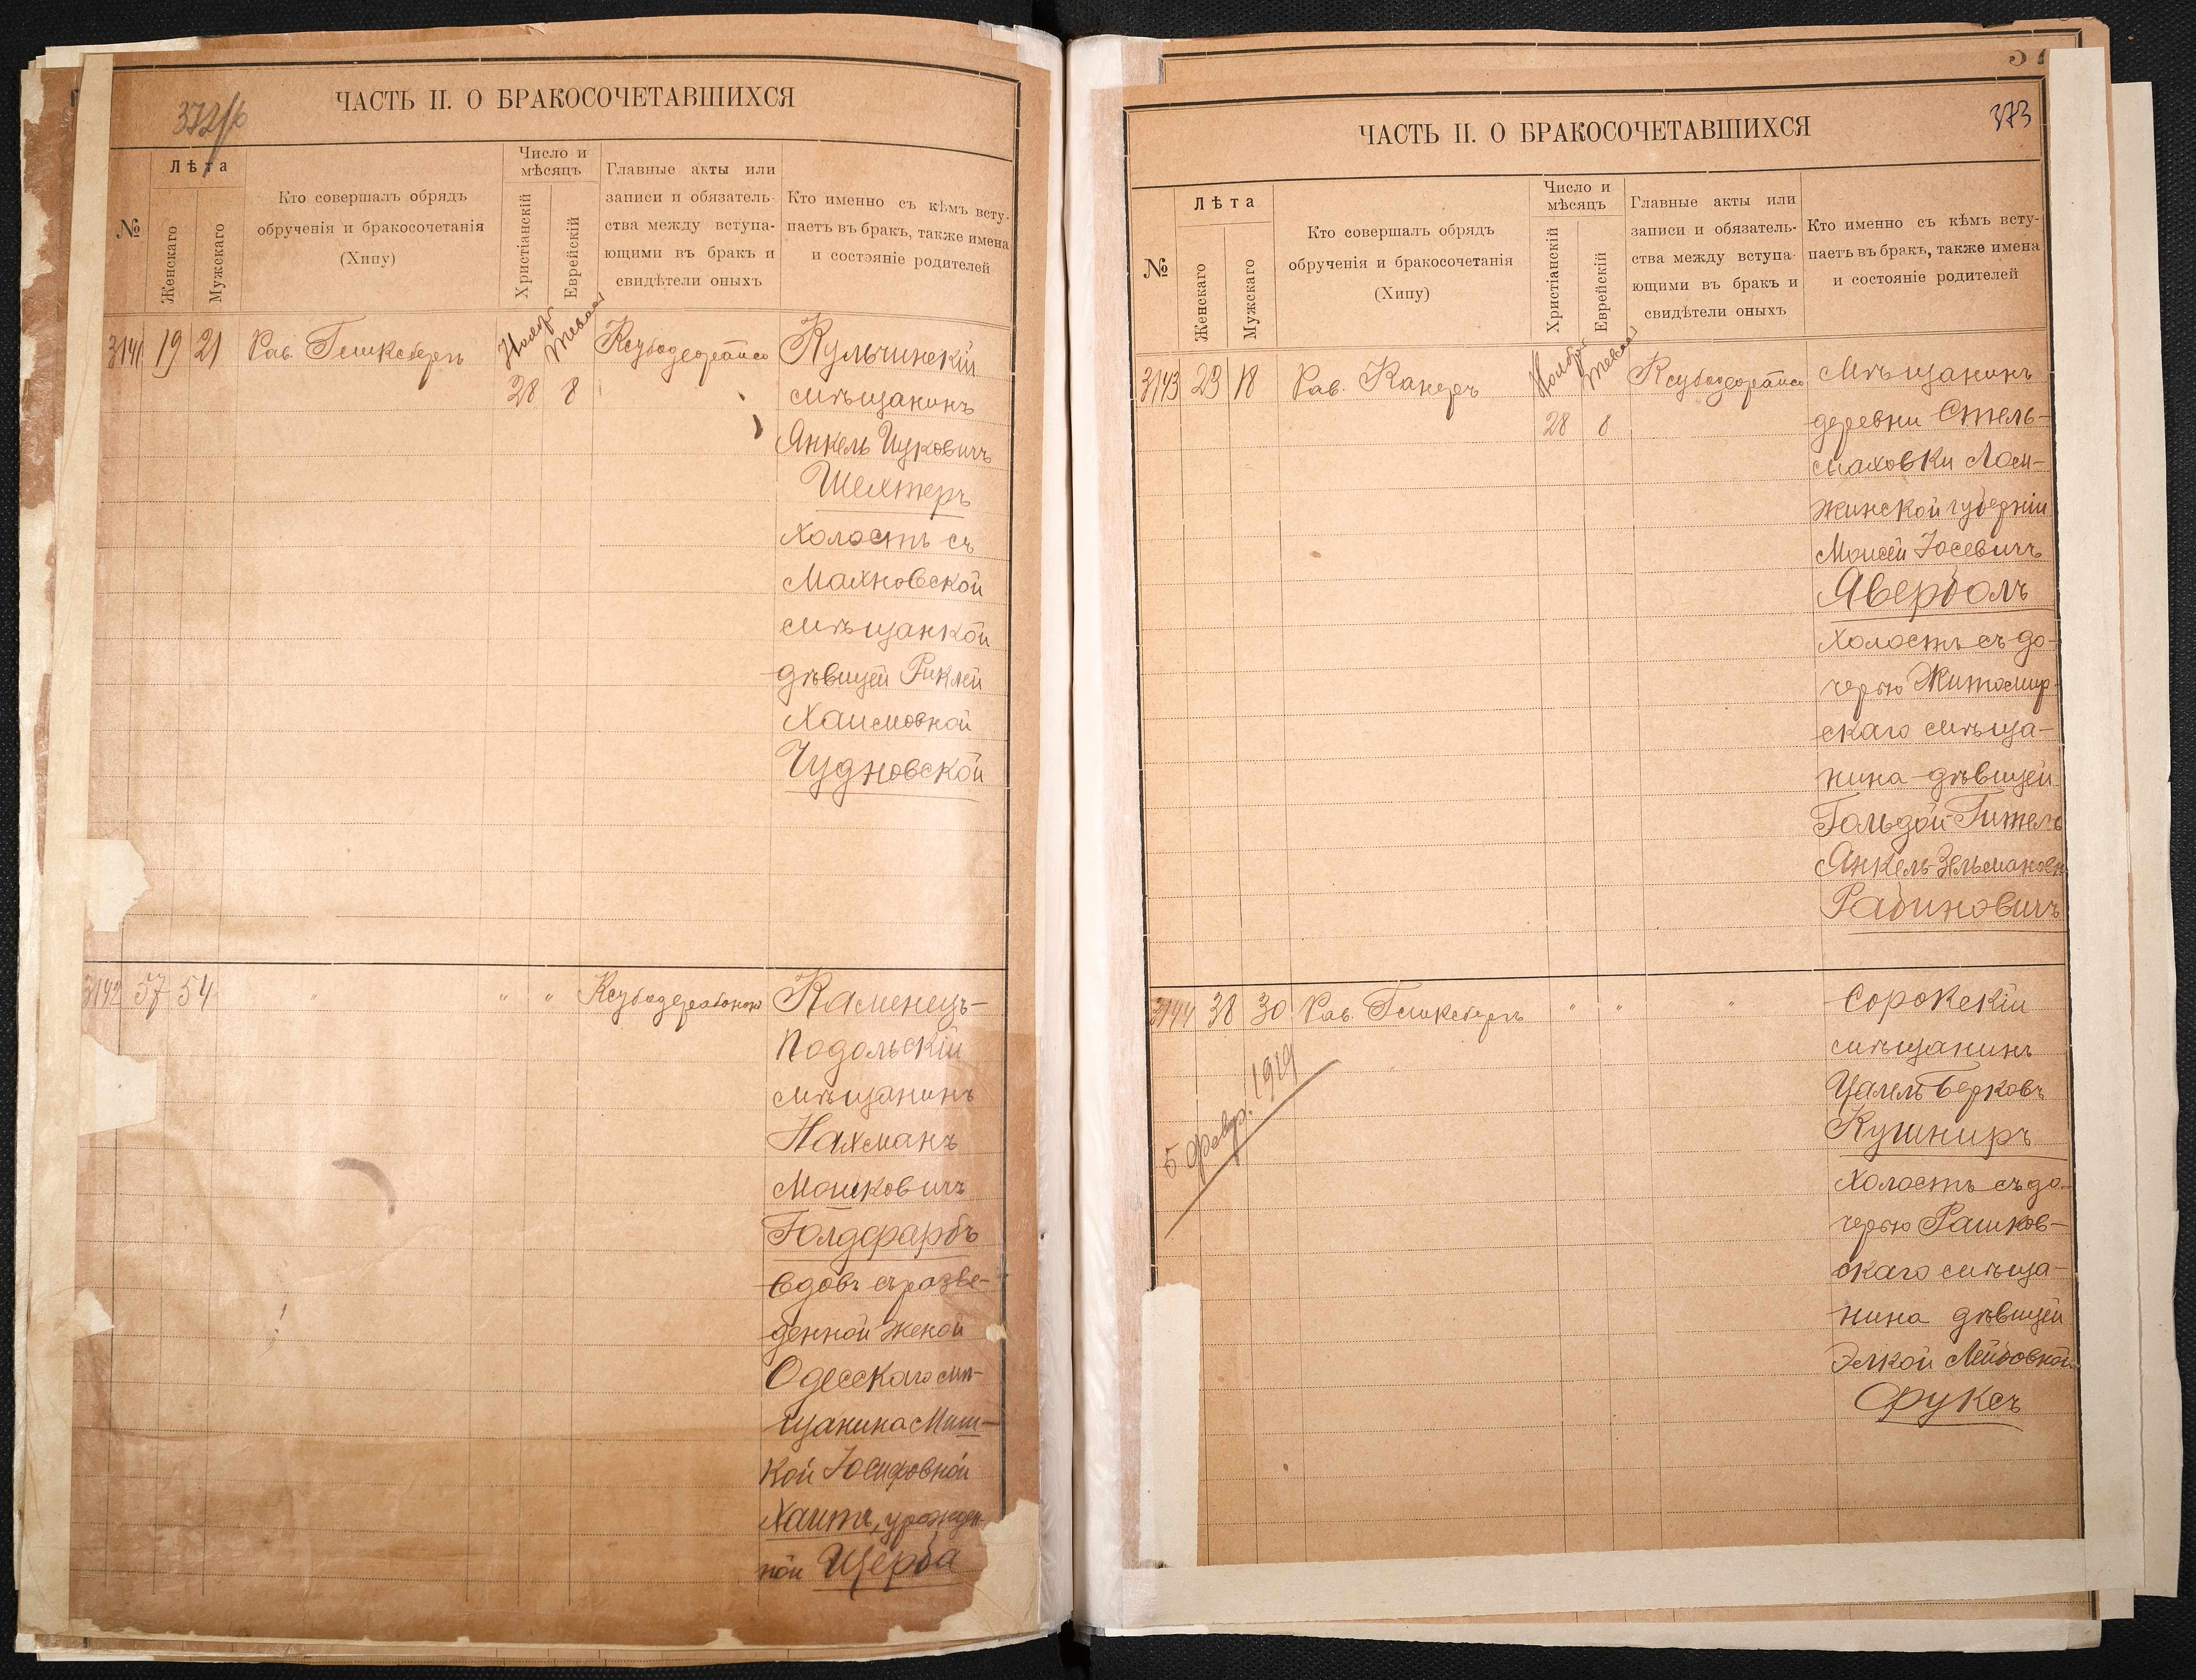 372/б
ЧАСТЬ II. О БРАКОСОЧЕТАВШИХСЯ
№
Лѣта
Женскаго
Мужскаго
Кто совершалъ обрядъ
обрученія и бракосочетанія
(Хипу)
Число и
мѣсяцъ
Христіанскій
Еврейскій
Главные акты или
записи и обязатель-
ства между вступа-
ющими въ бракъ и
свидѣтели оныхъ
Кто именно съ кѣмъ всту-
паетъ въ бракъ, также имена
и состояніе родителей
3141 19 21 Рав. Гемксбергъ
28 8
Кульчинскій
мѣщанинъ
Янкель Ицковичъ
Шехтеръ
холостъ съ
Махновской
мѣщанкой
дѣвицей Риклей
Хаимовной
Чудновской
3142 57 54 " " "
Каменецъ-
Подольскій
мѣщанинъ
Нахманъ
Мошковичъ
Голдфарбъ
вдовъ съ разве-
денной женой
Одесскаго мѣ-
щанина Мин-
кой Іосифовной
Хаитъ, урожден-
ной Щерба
373
ЧАСТЬ II. О БРАКОСОЧЕТАВШИХСЯ
№
Лѣта
Женскаго
Мужскаго
Кто совершалъ обрядъ
обрученія и бракосочетанія
(Хипу)
Число и
мѣсяцъ
Христіанскій
Еврейскій
Главные акты или
записи и обязатель-
ства между вступа-
ющими въ бракъ и
свидѣтели оныхъ
Кто именно съ кѣмъ всту-
паетъ въ бракъ, также имена
и состояніе родителей
3143 23 18 Рав. Канеръ
Ноября
28 8
Мѣщанинъ
деревни Стель-
маховки Лом-
жинской губерніи
Моисей Іосевичъ
Аверболъ
холостъ съ до-
черью Житомир-
скаго мѣща-
нина дѣвицей
Гольдой-Гитель
Янкель-Зельмановн
Рабиновичъ
3144 38 30 Рав. Гемксбергъ " " "
5 февр. 1919
Сорокскій
мѣщанинъ
Цалель Берковъ
Кушниръ
холостъ съ до-
черью Рашков-
скаго мѣща-
нина дѣвицей
Элкой Лейбовной
Фуксъ